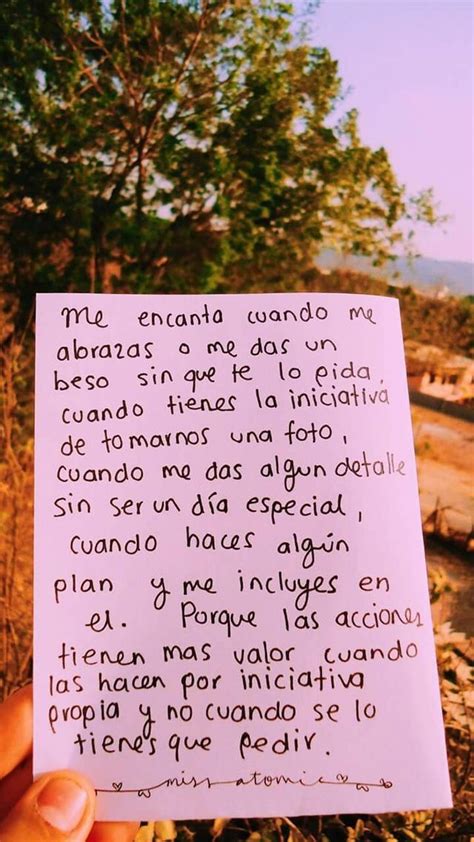 Me encanta cuando me
abrazas o me das un
beso sin que te lo pida,
cuando tienes la iniciativa
de tomarnos una foto,
cuando me das algun detalle
sin ser un día especial,
cuando haces algún
plan y me incluyes en
el. Porque las acciones
tienen mas valor cuando
las hacen por iniciativa
propia y no cuando se lo
tienes que pedir.
miss atomic